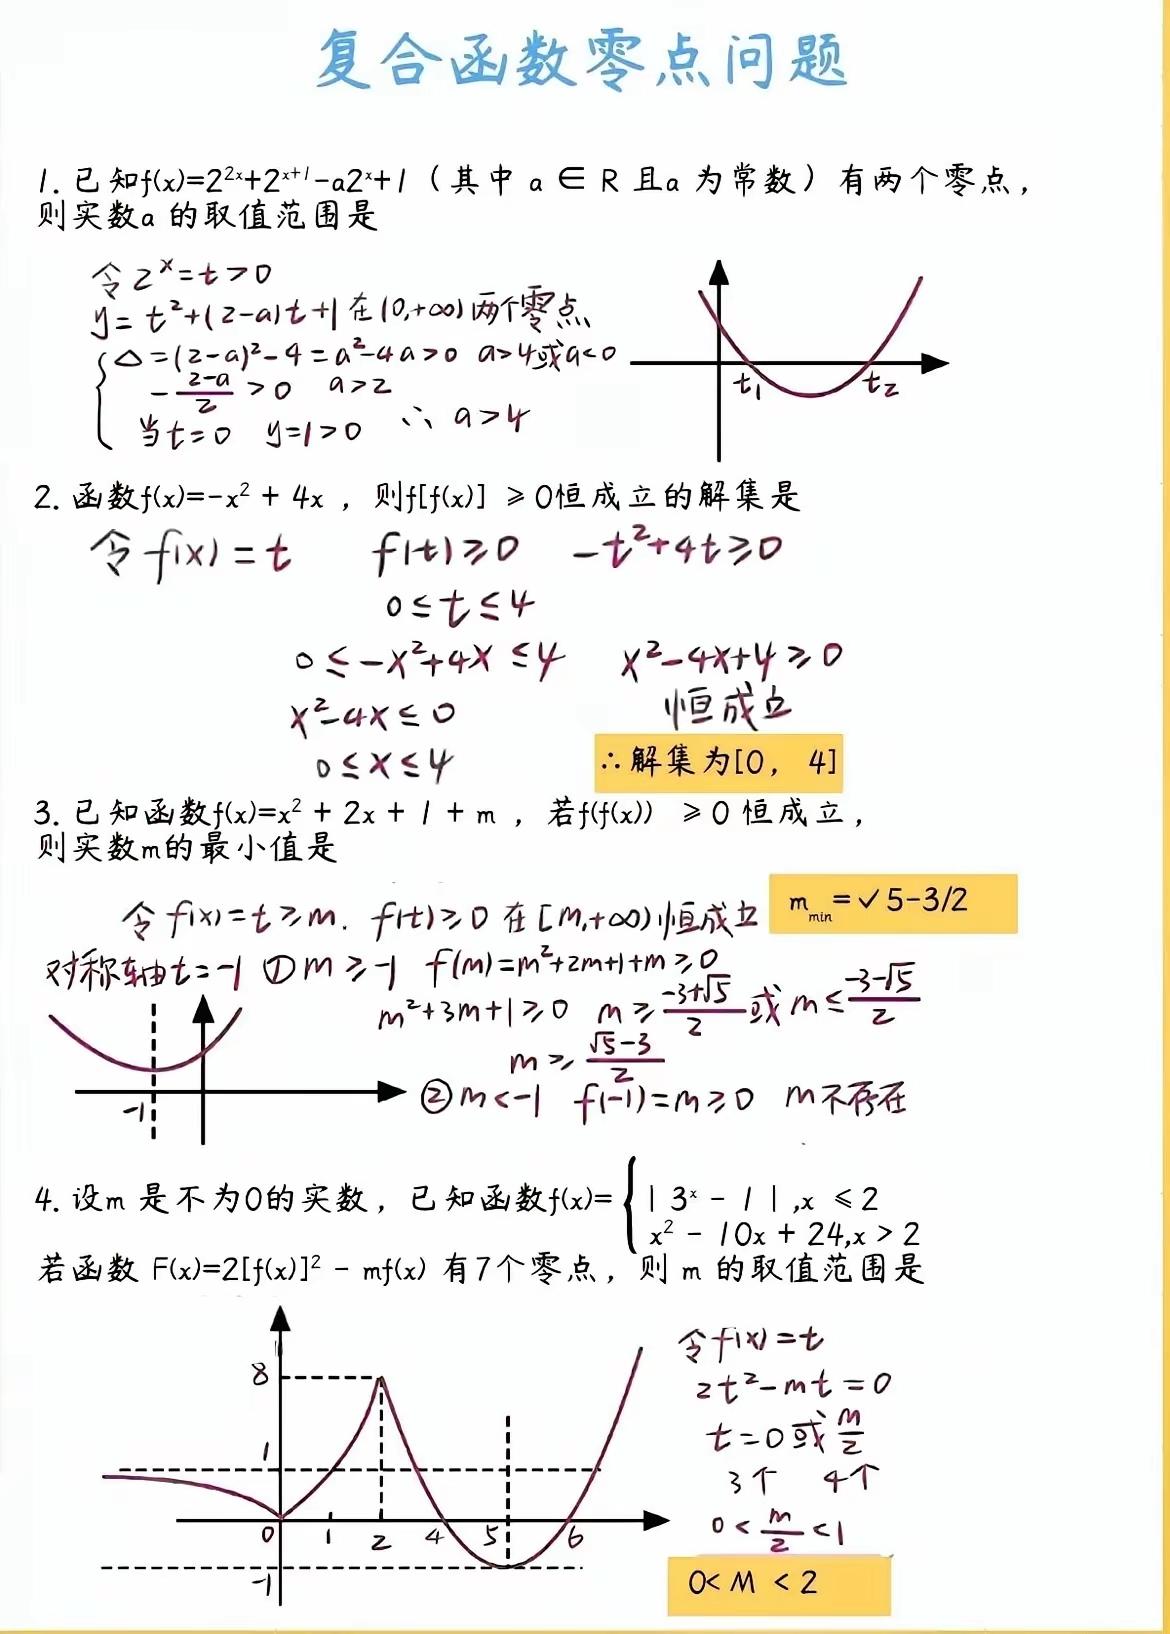 复合函数零点问题
1. 已知f(x)=2²ˣ+2ˣ⁺¹-a2ˣ+1（其中 a ∈ R 且a 为常数）有两个零点，
则实数a 的取值范围是
令2ˣ=t>0
y= t²+(2-a)t+1在(0,+∞)两个零点
△=(2-a)²-4=a²-4a>0 a>4或a<0
-(2-a)/2>0 a>2
当t=0 y=1>0 ∴ a>4
t₁ t₂
2. 函数f(x)=-x² + 4x ，则f[f(x)] ≥0恒成立的解集是
令f(x)=t f(t)≥0 -t²+4t≥0
0≤t≤4
0≤-x²+4x≤4 x²-4x+4≥0
x²-4x≤0 恒成立
0≤x≤4 ∴解集为[0， 4]
3. 已知函数f(x)=x² + 2x + 1 + m ，若f(f(x)) ≥0 恒成立，
则实数m的最小值是
令f(x)=t≥m. f(t)≥0在[m,+∞)恒成立 m min=√5-3/2
对称轴t=-1 ①m≥-1 f(m)=m²+2m+1+m≥0
m²+3m+1≥0 m≥(-3+√5)/2或m≤(-3-√5)/2
m≥(√5-3)/2
-1 ②m<-1 f(-1)=m≥0 m不存在
4. 设m 是不为0的实数，已知函数f(x)={ | 3ˣ - 1 | ,x ≤2
x² - 10x + 24,x > 2
若函数 F(x)=2[f(x)]² - mf(x) 有7个零点，则 m 的取值范围是
令f(x)=t
8 2t²-mt=0
t=0或m/2
1 3个 4个
0 1 2 4 5 6 0<m/2<1
-1 0< M < 2